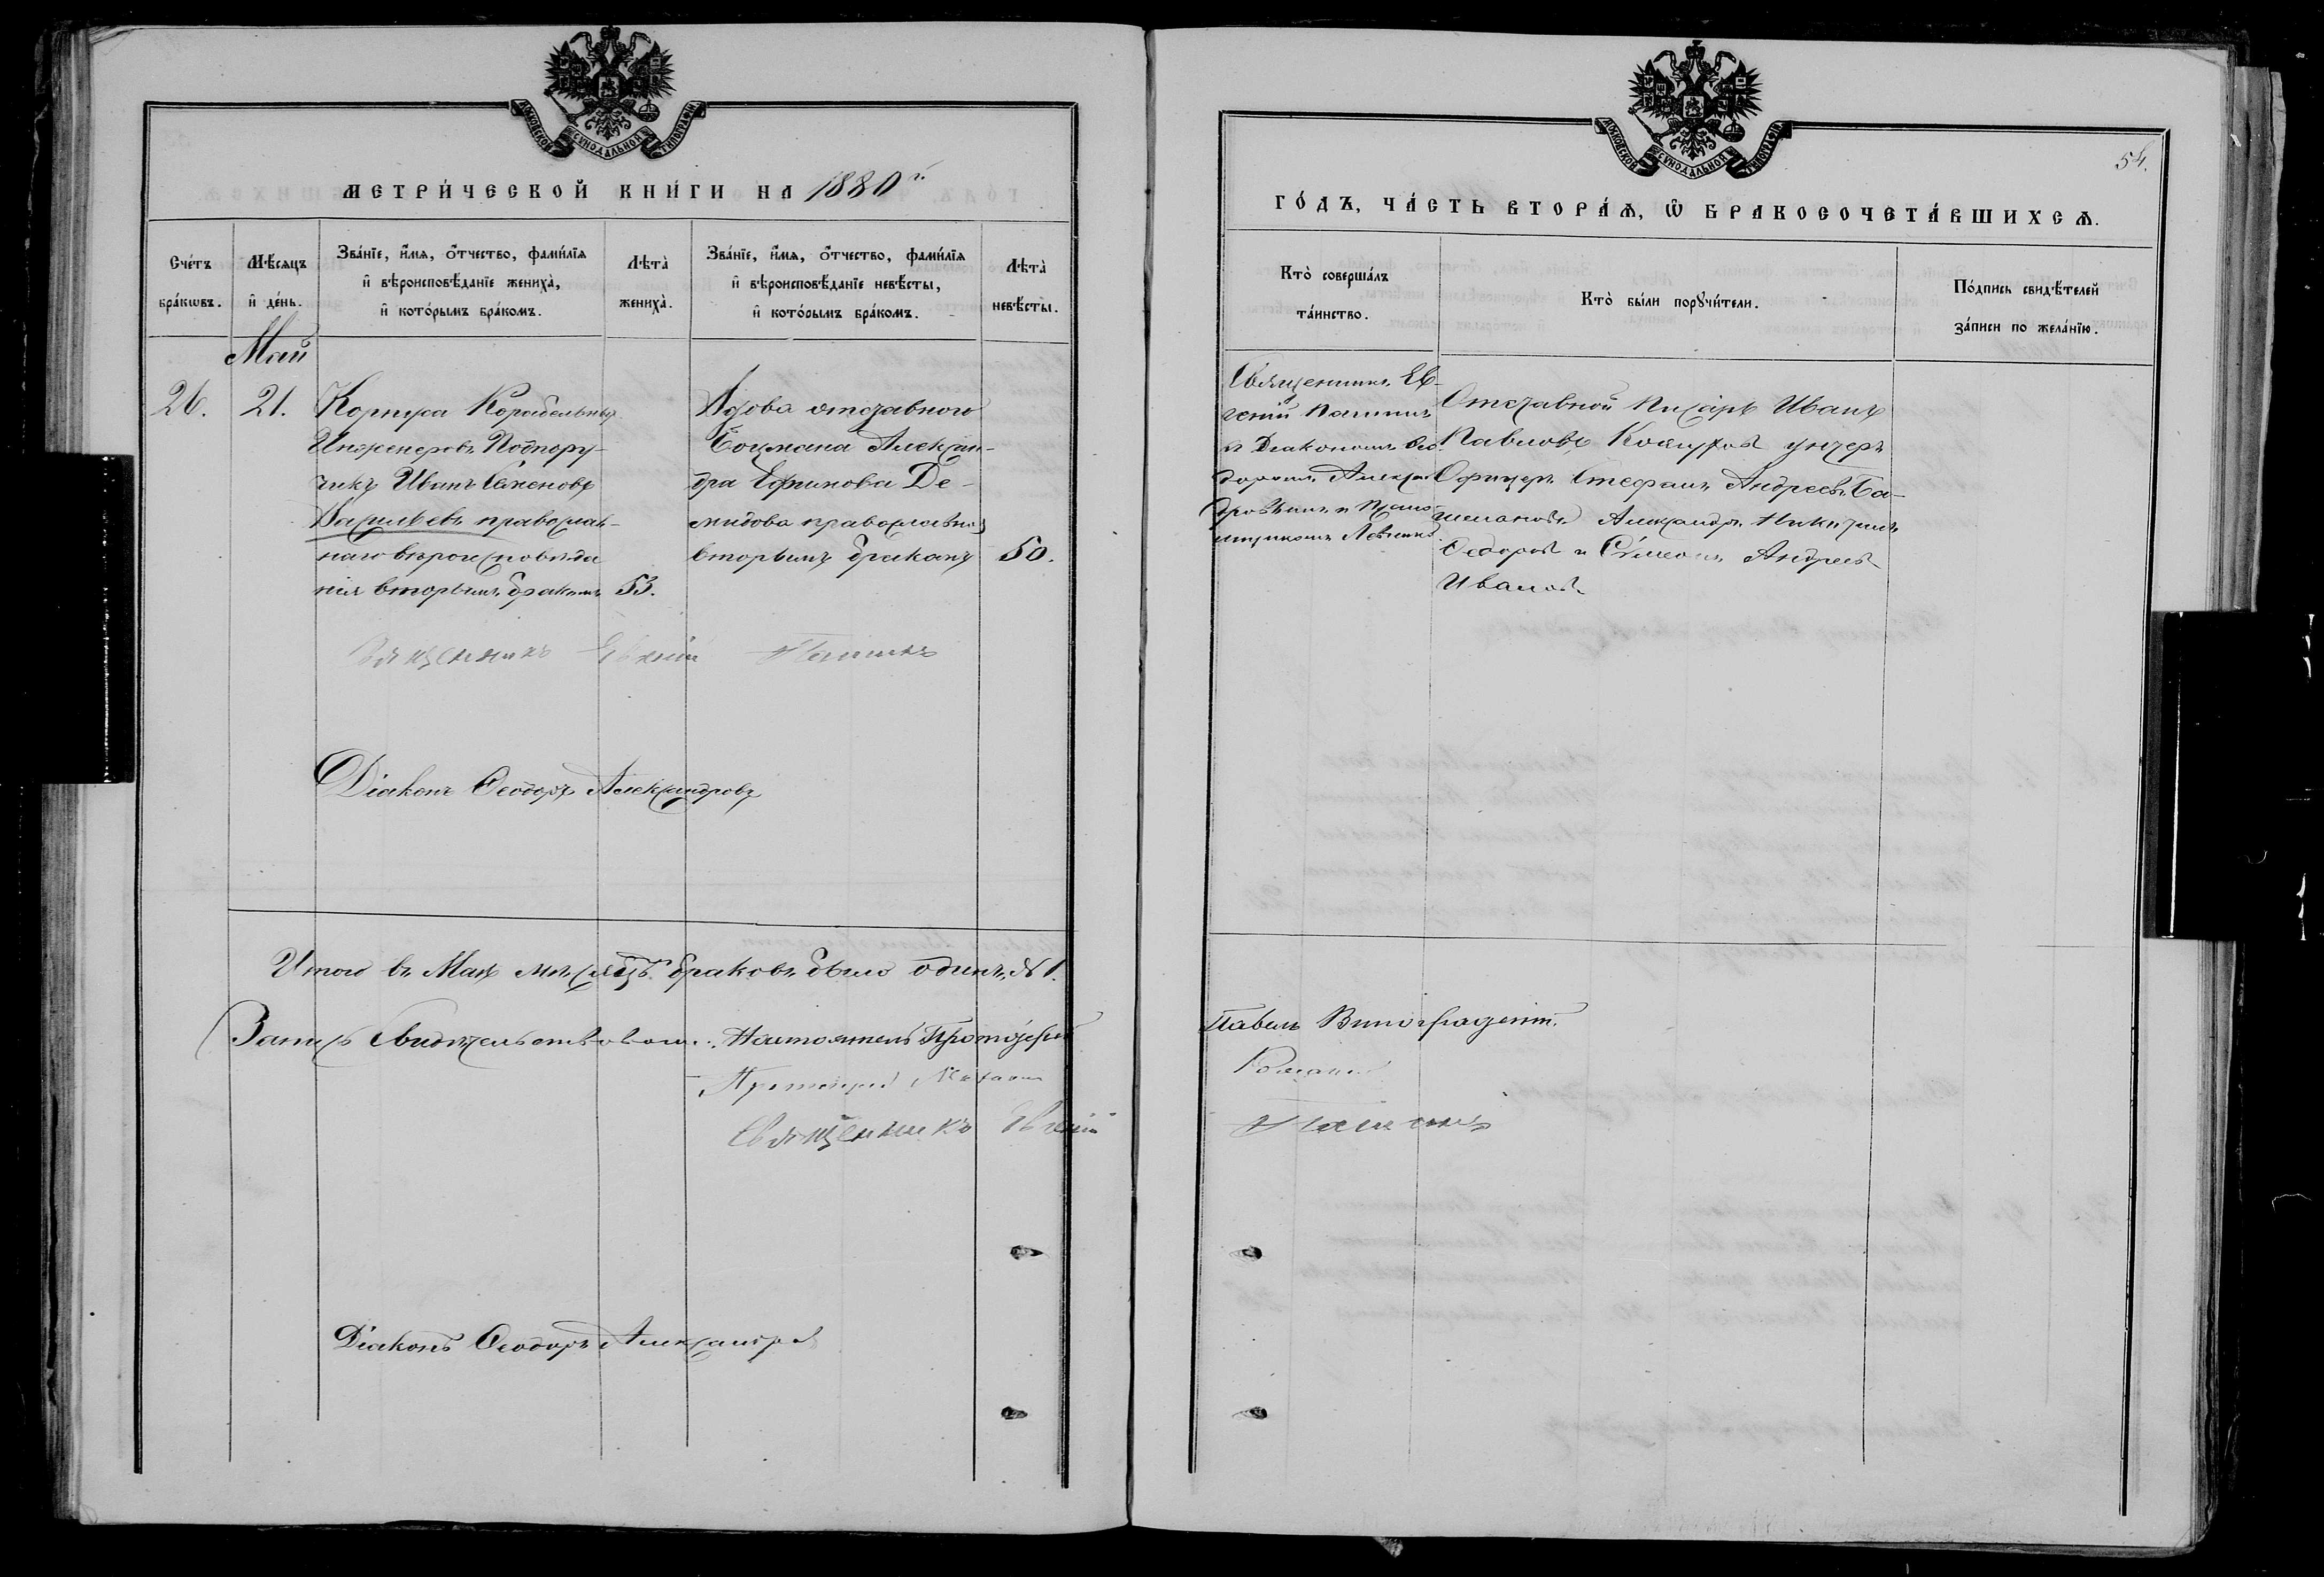 МОСКОВСКОЙ СѴНОДАЛЬНОЙ ТИПОГРАФІИ
МЕТРИ́ЧЕСКОЙ КНИ́ГИ НА 1880й
Сче́тъ бра́кѡвъ.
Мѣ́сяцъ и҆ де́нь.
Зва́нїе, и҆́мя, ѻ҆́тчество, фами́лїя
и҆ вѣроисповѣ́данїе жениха̀,
и҆ кото́рымъ бра́комъ.
Лѣта̀ жениха̀.
Зва́нїе, и҆́мя, ѻ҆́тчество, фами́лїя
и҆ вѣроисповѣ́данїе невѣ́сты,
и҆ кото́рымъ бра́комъ.
Лѣта̀ невѣ́сты.
Май
26.
21.
Корпуса Корабельныхъ
Инженеровъ Подпору-
чикъ Иванъ Семеновъ
Васильевъ православ-
наго вѣроисповѣда
нія вторымъ бракомъ
53.
Вдова отставного
Боцмана Алексан-
дра Ефимова Де-
мидова православная
вторымъ бракомъ
50.
Священникъ Евгеній
Діаконъ Ѳеодоръ Александровъ
Итого въ Маѣ мѣсяцѣ браковъ было одинъ. № 1.
Запись свидѣтельствовали: Настоятель Протоіерей
Протоіерей
Священникъ Евгеній
Діаконъ Ѳеодоръ Александровъ
МОСКОВСКОЙ СѴНОДАЛЬНОЙ ТИПОГРАФІИ
54.
ГО́ДЪ, ЧА́СТЬ ВТОРА́Ѧ, Ѡ҆ БРАКОСОЧЕТА́ВШИХСѦ.
Кто̀ соверша́лъ
та́инство.
Кто̀ бы́ли порꙋчи́тели.
По́дпись свидѣ́телей
за́писи по жела́нїю.
Священникъ Ев-
геній
съ Діакономъ Ѳео-
доромъ Алексан
дровымъ и Псало-
мщикомъ
Отставной Писарь Иванъ
Павловъ унтеръ
Офицеръ Стефанъ Андреевъ Ба-
Александръ Никитинъ
Ѳедоровъ и Сѵмеонъ Андреевъ
Ивановъ
Павелъ Виноградовъ